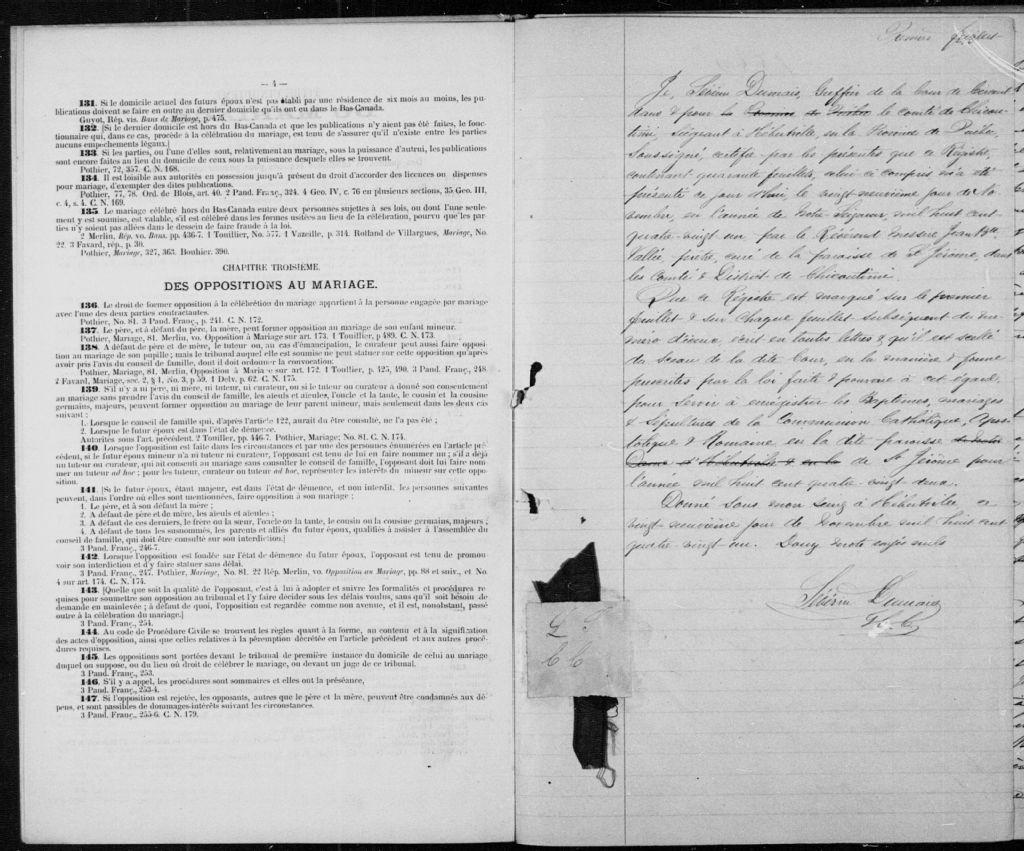 — 4 —
131. Si le domicile actuel des futurs époux n'est pas établi par une résidence de six mois au moins, les pu-
blications doivent se faire en outre au dernier domicile qu'ils ont eu dans le Bas-Canada.
Guyot, Rép. vis. Bans de Mariage, p. 475.
132. [Si le dernier domicile est hors du Bas-Canada et que les publications n'y aient pas été faites, le fonc-
tionnaire qui, dans ce cas, procède à la célébration du mariage, est tenu de s'assurer qu'il n'existe entre les parties
aucuns empêchements légaux.]
133. Si les parties, ou l'une d'elles sont, relativement au mariage, sous la puissance d'autrui, les publications
sont encore faites au lieu du domicile de ceux sous la puissance desquels elles se trouvent.
Pothier, 72, 357. C. N. 168.
134. Il est loisible aux autorités en possession jusqu'à présent du droit d'accorder des licences ou dispenses
pour mariage, d'exempter des dites publications.
Pothier, 77, 78. Ord. de Blois, art. 40. 2 Pand. Franç., 324. 4 Geo. IV, c. 76 en plusieurs sections, 35 Geo. III,
c. 4, s. 4. C. N. 169.
135. Le mariage célébré hors du Bas-Canada entre deux personnes sujettes à ses lois, ou dont l'une seule-
ment y est soumise, est valable, s'il est célébré dans les formes usitées au lieu de la célébration, pourvu que les par-
ties n'y soient pas allées dans le dessein de faire fraude à la loi.
2 Merlin, Rép. vo. Bans. pp. 436-7. 1 Toullier, No. 577. 1 Vazeille, p. 314. Rolland de Villargues, Mariage, No.
22. 3 Favard, rép., p. 30.
Pothier, Mariage, 327, 363. Bouhier. 390.
CHAPITRE TROISIÈME.
DES OPPOSITIONS AU MARIAGE.
136. Le droit de former opposition à la célébrétion du mariage appartient à la personne engagée par mariage
avec l'une des deux parties contractantes.
Pothier, No. 81. 3 Pand. Franç., p. 241. C. N. 172.
137. Le père, et à défaut du père, la mère, peut former opposition au mariage de son enfant mineur.
Pothier, Mariage, 81. Merlin, vo. Opposition à Mariage sur art. 173. 1 Touillier, p 489. C. N. 173.
138. A défaut de père et de mère, le tuteur ou, au cas d'émancipation, le curateur peut aussi faire opposi-
tion au mariage de son pupille; mais le tribunal auquel elle est soumise ne peut statuer sur cette opposition qu'après
avoir pris l'avis du conseil de famille, dont il doit ordonner la convocation.
Pothier, Mariage, 81. Merlin, Opposition à Mariage sur art. 172. 1 Toullier, p. 425, 490. 3 Pand. Franç., 248.
2 Favard, Mariage, sec. 2, § 1, No. 3, p 59. 1 Delv. p. 62. C. N. 175.
139. S'il n'y a ni père, ni mère, ni tuteur, ni curateur, ou si le tuteur ou curateur a donné son consentement
au mariage sans prendre l'avis du conseil de famille, les aïeuls et aïeules, l'oncle et la tante, le cousin et la cousine
germains, majeurs, peuvent former opposition au mariage de leur parent mineur, mais seulement dans les deux cas
suivant :
1. Lorsque le conseil de famille qui, d'après l'article 122, aurait du être consulté, ne l'a pas été ;
2. Lorsque le futur époux est dans l'état de démence.
Autorités sous l'art. précédent. 2 Touiller, pp. 446-7. Pothier, Mariage; No. 81. C. N. 174.
140. Lorsque l'opposition est faite dans les circonstances et par une des personnes énumérées en l'article pré-
cédent, si le futur époux mineur n'a ni tuteur ni curateur, l'opposant est tenu de lui en faire nommer un ; s'il a déjà
un tuteur ou curateur, qui ait consenti au mariage sans consulter le conseil de famille, l'opposant doit lui faire nom-
mer un tuteur ad hoc ; pour les tuteur, curateur ou tuteur ad hoc, représenter les intérêts du mineur sur cette oppo-
sition.
141. [Si le futur époux, étant majeur, est dans l'état de démence, et non interdit, les personnes suivantes
peuvent, dans l'ordre où elles sont mentionnées, faire opposition à son mariage ;
1. Le père, et à son défaut la mère ;
2. A défaut de père et de mère, les aïeuls et aïeules ;
3. A défaut de ces derniers, le frère ou la sœur, l'oncle ou la tante, le cousin ou la cousine germains, majeurs ;
4. A défaut de tous les susnommés, les parents et alliés du futur époux, qualifiés à assister à l'assemblée du
conseil de famille, qui doit être consulté sur son interdiction.]
3 Pand. Franç., 246-7.
142. Lorsque l'opposition est fondée sur l'état de démence du futur époux, l'opposant est tenu de promou-
voir son interdiction et d'y faire statuer sans délai.
3 Pand. Franç., 247. Pothier, Mariage, No. 81. 22 Rép. Merlin, vo. Opposition au Mariage, pp. 88 et suiv., et No.
4 sur art. 174. C. N. 174.
143. [Quelque que soit la qualité de l'opposant, c'est à lui à adopter et suivre les formalités et procédures re-
quises pour soumettre son opposition au tribunal et l'y faire décider sous les délais voulus, sans qu'il soit besoin de
demande en mainlevée ; à défaut de quoi, l'opposition est regardée comme non avenue, et il est, nonobstant, passé
outre à la célébration du mariage.]
3 Pand. Franç., 254.
144. Au code de Procédure Civile se trouvent les règles quant à la forme, au contenu et à la signification
des actes d'opposition, ainsi que celles relatives à la péremption décrétée en l'article précédent et aux autres procé-
dures requises.
145. Les oppositions sont portées devant le tribunal de première instance du domicile de celui au mariage
duquel on suppose, ou du lieu où droit de célébrer le mariage, ou devant un juge de ce tribunal.
3 Pand. Franç., 253.
146. S'il y a appel, les procédures sont sommaires et elles ont la préséance,
3 Pand. Franç., 253-4.
147. Si l'opposition est rejetée, les opposants, autres que le père et la mère, peuvent être condamnés aux dé-
pens, et sont passibles de dommages-intérêts suivant les circonstances.
3 Pand. Franç., 255-6. C. N. 179.
Premier feuillet
Je, Sévérin Dumais, Greffier de la Cour de Circuit
dans & pour le comté de Chicou-
timi, Siégeant à Hébertville, en la Province de Québec,
Soussigné, certifie par les présentes que ce Registre,
contenant quarante feuillets, celui-ci compris m'a été
présenté ce jour d'hui, le vingt neuvième jour de No-
vembre, en l'année de Notre Seigneur, mil huit cent
quatre-vingt un par le Révérend Messire Jean Bte
Vallée, prêtre, curé de la paroisse de St Jérôme, dans
les Comté & District de Chicoutimi.
Que ce Régistre est marqué sur le premier
feuillet & sur chaque feuillet subséquent du nu-
méro d'iceux, écrit en toutes lettres & qu'il est scellé
du sceau de la dite Cour, en la manière & forme
prescrites par la loi faite & pourvue à cet égard,
pour Servir à enregistrer les Baptêmes, mariages
& Sépultures de la Communion Catholique, Apos-
tolique & Romaine en la dite paroisse de Notre
Dame d'Hébertville & en la de St Jérôme pour
l'année mil huit cent quatre-vingt deux.
Donné Sous mon seing à Hébertville ce
vingt-neuvième jour de Novembre mil huit cent
quatre-vingt-un. Douze mots rayés nuls
Sévérin Dumais
G. C. C.
L S
C C